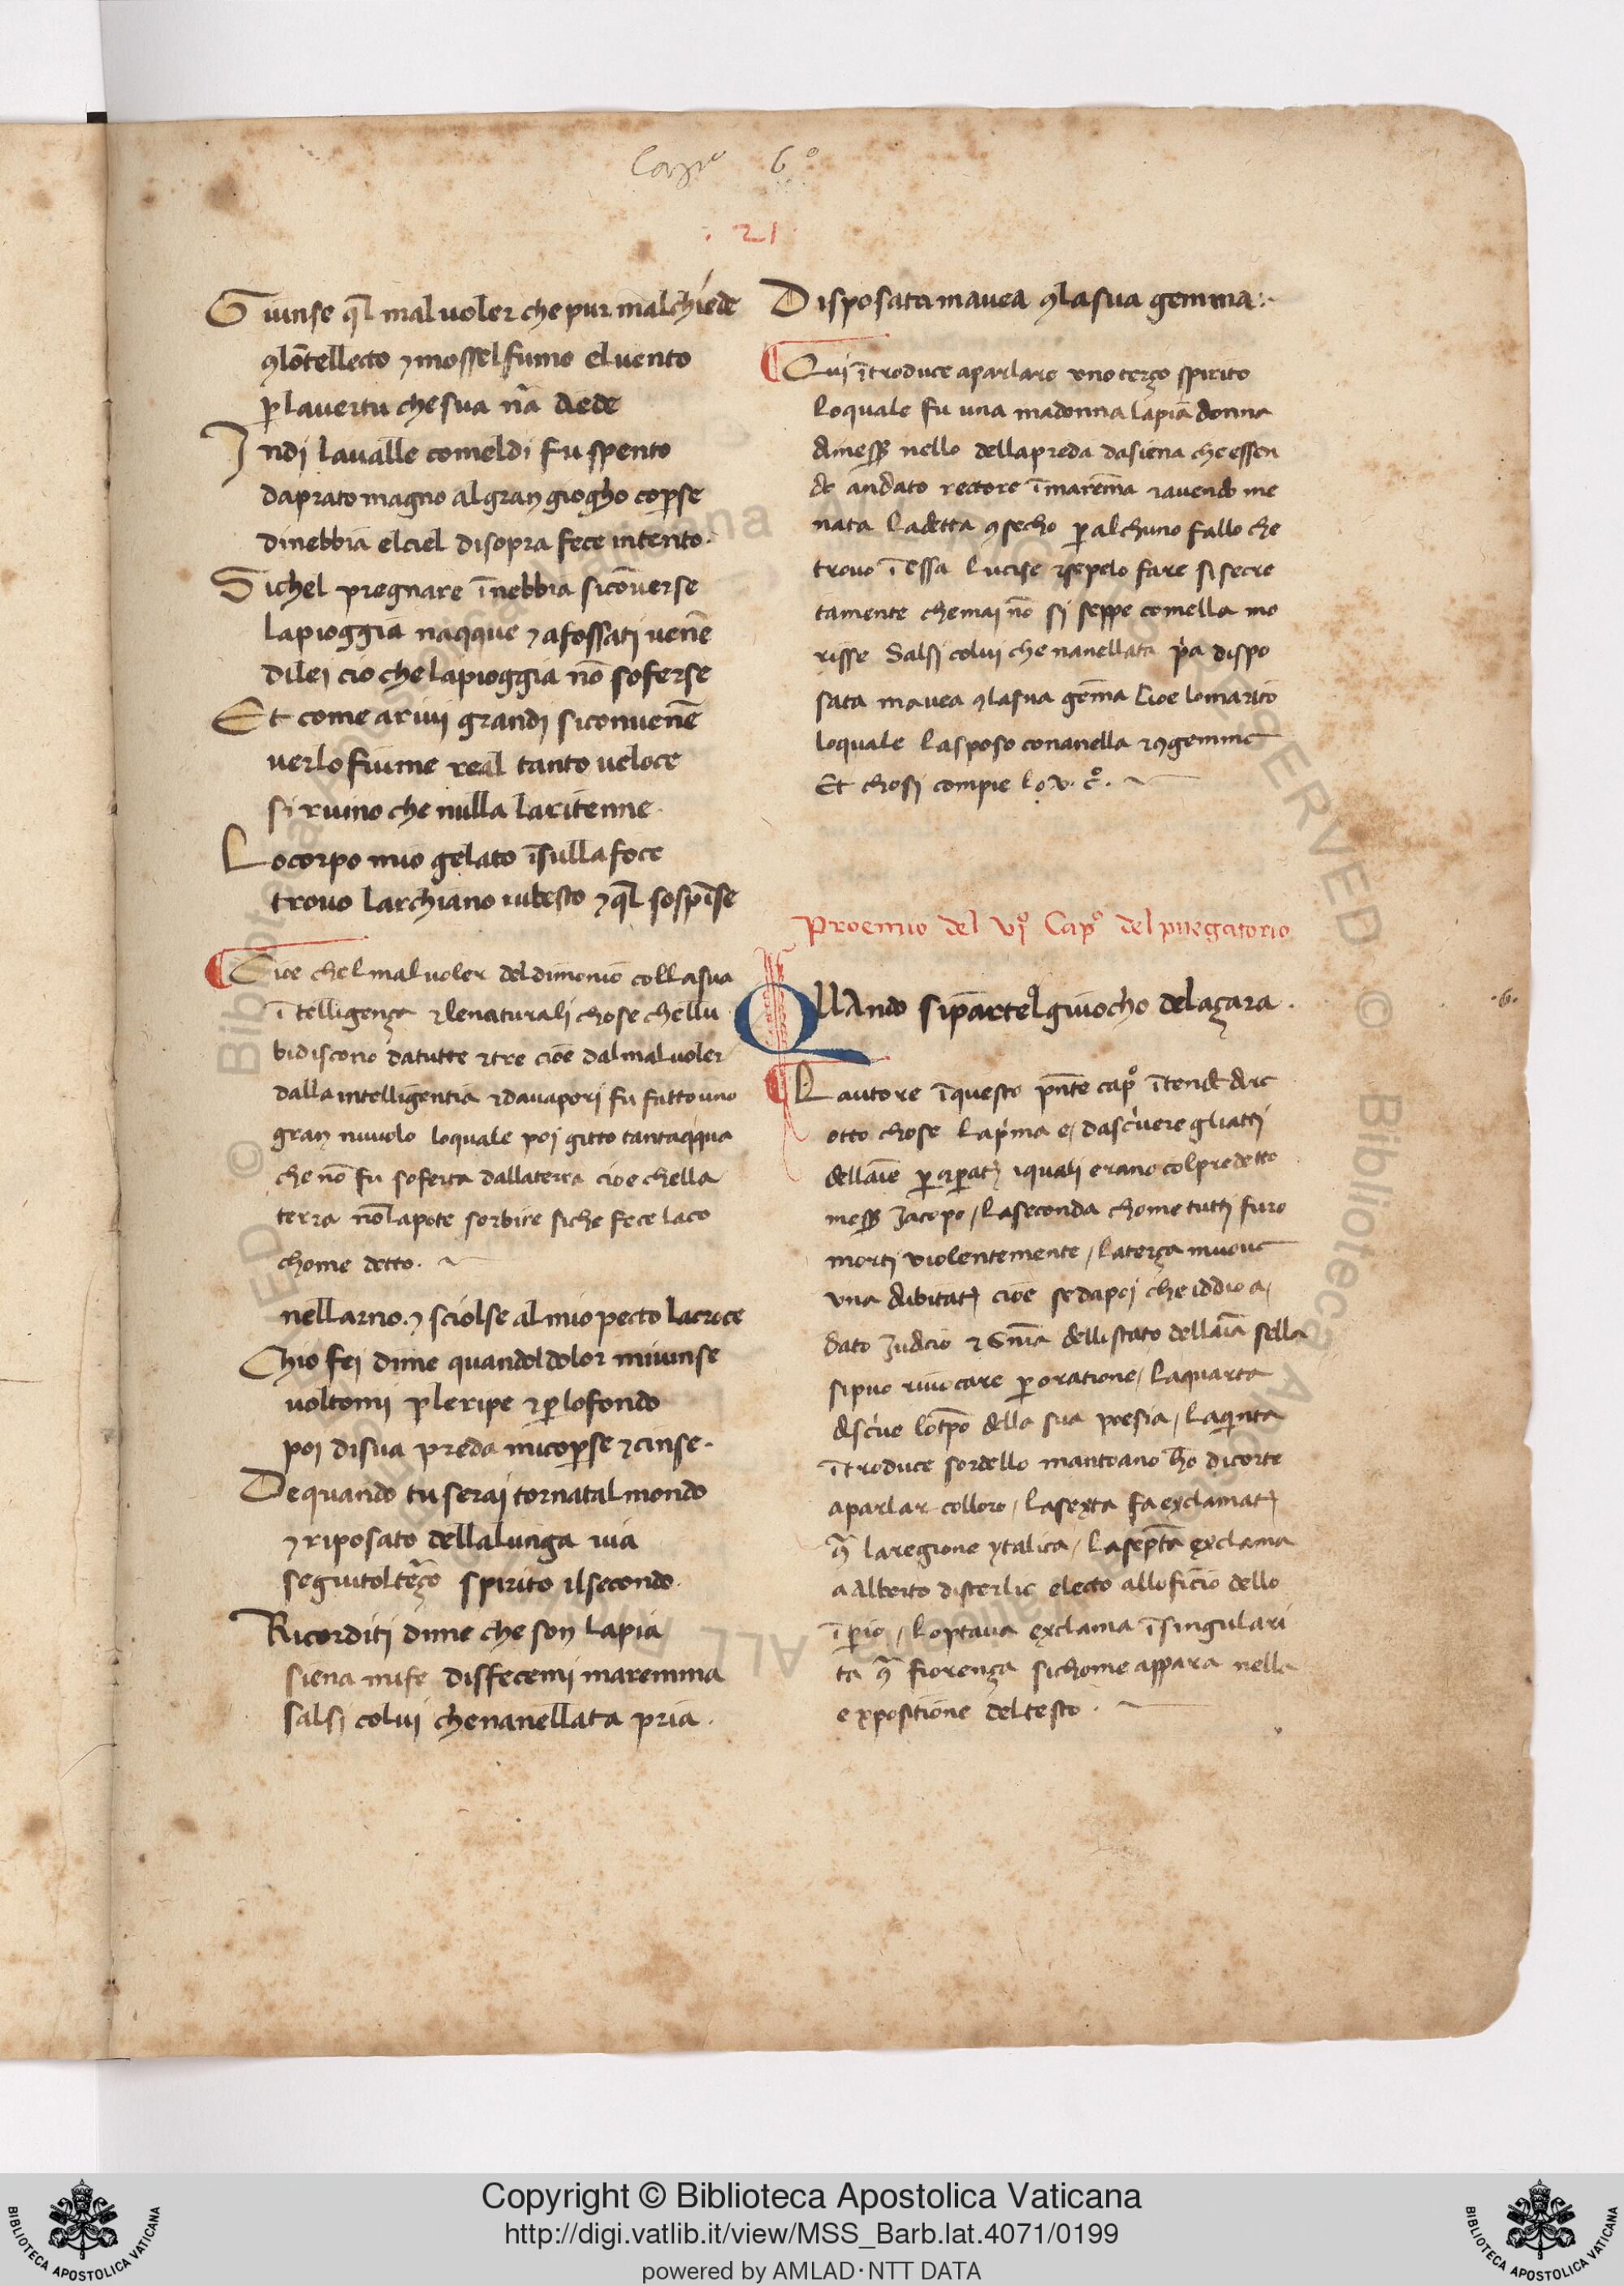 Capo 6°
. 21
Giunse ql mal uoler che pur mal chiede
ꝯ lo ̄ntellecto ⁊ mosse l fumo el uento
ꝑ la uertu che sua nā diede
Indi laualle comeldi fu spento
da prato magno al gran giogho coꝑse
di nebbia el ciel di sopra fece intento.
Sichel pregnare ī nebbia si cōuerse
la pioggia naqque ⁊ a fossati uenē
di lei cio che la pioggia nō soferse
Et come a riui grandi si conuenē
uer lo fiume real tanto ueloce
si ruino che nulla la ritenne.
Lo corpo mio gelato ī sulla foce
trouo larchiano rubesto ⁊ ql sospīse
Dice chel mal uoler del dimonio colla sua
ītelligença ⁊ le naturali chose chellu
bidiscono da tutte ⁊ tre cioe dal mal uoler
dalla intelligentia ⁊ da uapori fu fatto uno
gran nuuolo loquale poi gitto tanta acqua
che nō fu soferta dalla terra cioe chella
terra nō la pote sorbire siche fece laco
chome detto.
nellarno. ⁊ sciolse al mio pecto la croce
Chio fei di me quandol dolor mi uinse
uoltomi ꝑ le ripe ⁊ ꝑ lo fondo
poi di sua preda mi coꝑse ⁊ cinse.
De quando tu serai tornatal mondo
⁊ riposato della lunga uia
seguitol terço spirito il secondo.
Ricorditi di me che son la pia
siena mi fe disfecemi maremma
salsi colui chenanellata pria.
Disposata mauea ꝯ la sua gemma:.
Qui ītroduce a parlare uno terço spirito
loquale fu una madonna la pia donna
di mess̄ nello della preda da siena che essen
do andato rectore ī marēma ⁊ auendo me
nata la detta ꝯ secho ꝑ alchuno fallo che
trouo ī essa lucise ⁊ sepelo fare si secre
tamente che mai nō si seppe comella mo
risse Salsi colui che nanellata pia dispo
sata mauea ꝯ la sua gēma Cioe lo marito
loquale la sposo con anella ⁊ ꝯ gemme
Et chosi compie lo .v. c°.
Proemio del vi° Cap° del purgatorio
.6.
QUAndo si partel giuocho del açara.
Lautore ī questo pn̄te cap° ītende dire
otto chose la pima e, dascriuere gli atti
dellaīe
mess̄ Jacopo, la seconda chome tutti furo
morti uiolentemente, la terça muoue
una dubitatꝫ cioe se da poi che iddio a,
dato judicio ⁊ snīa dello stato dellaīa sella
si puo riuocare ꝑ oratione, la quarta
discriue lo tp̄o della sua poesia, la quinta
ītroduce sordello mantoano ho di corte
a parlar colloro, la sexta fa exclamatꝫ
la regione ytalica, la septīa exclama
a Alberto disterlic electo allo ficio dello
īꝑio, loptaua exclama ī singulari
ta fiorença si chome appara nella
expositione del testo.
Copyright © Biblioteca Apostolica Vaticana
http://digi.vatlib.it/view/MSS_Barb.lat.4071/0199
powered by AMLAD·NTT DATA
BIBLIOTECA APOSTOLICA VATICANA
BIBLIOTECA APOSTOLICA VATICANA